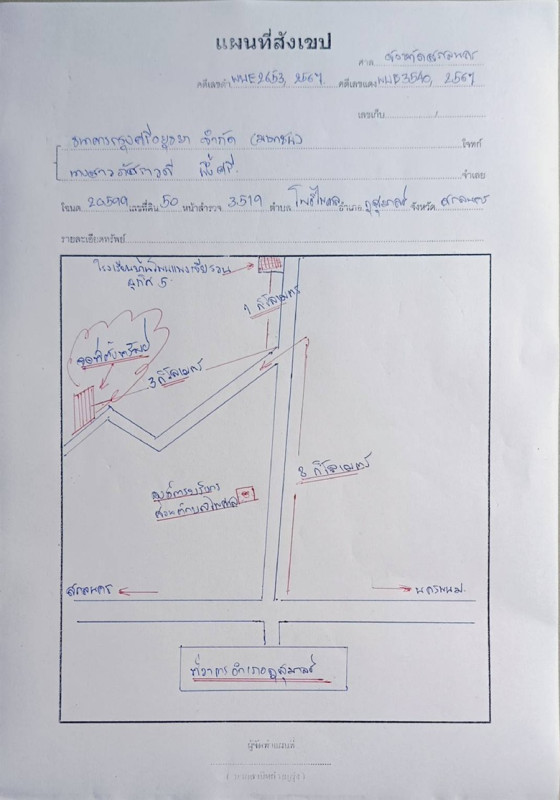 แผนที่สังเขป
ศาล จังหวัดสกลนคร
คดีเลขดำ ผบE2653, 2567 คดีเลขแดง ผบE3540, 2567
เลขเก็บ /
ธนาคารกรุงศรีอยุธยา จำกัด (มหาชน) โจทก์
จำเลย
โฉนด 20599 เลขที่ดิน 50 หน้าสำรวจ 3519 ตำบล โพธิไพศาล อำเภอ กุสุมาลย์ จังหวัด สกลนคร
รายละเอียดทรัพย์
อุทิศ 5
1 กิโลเมตร
จุดที่ตั้งทรัพย์
3 กิโลเมตร
8 กิโลเมตร
องค์การบริหาร
ส่วนตำบลโพธิไพศาล
สกลนคร
นครพนม
ที่ว่าการอำเภอกุสุมาลย์
ผู้จัดทำแผนที่